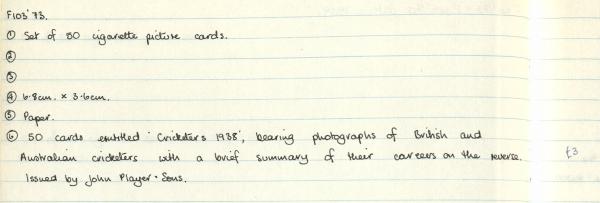 F103'73.
① Set of 50 cigarette picture cards.
②
③
④ 6.8cm. × 3.6cm.
⑤ Paper.
⑥ 50 cards entitled 'Cricketers 1938', bearing photographs of British and
Australian cricketers with a brief summary of their careers on the reverse. £3
Issued by John Player · Sons.